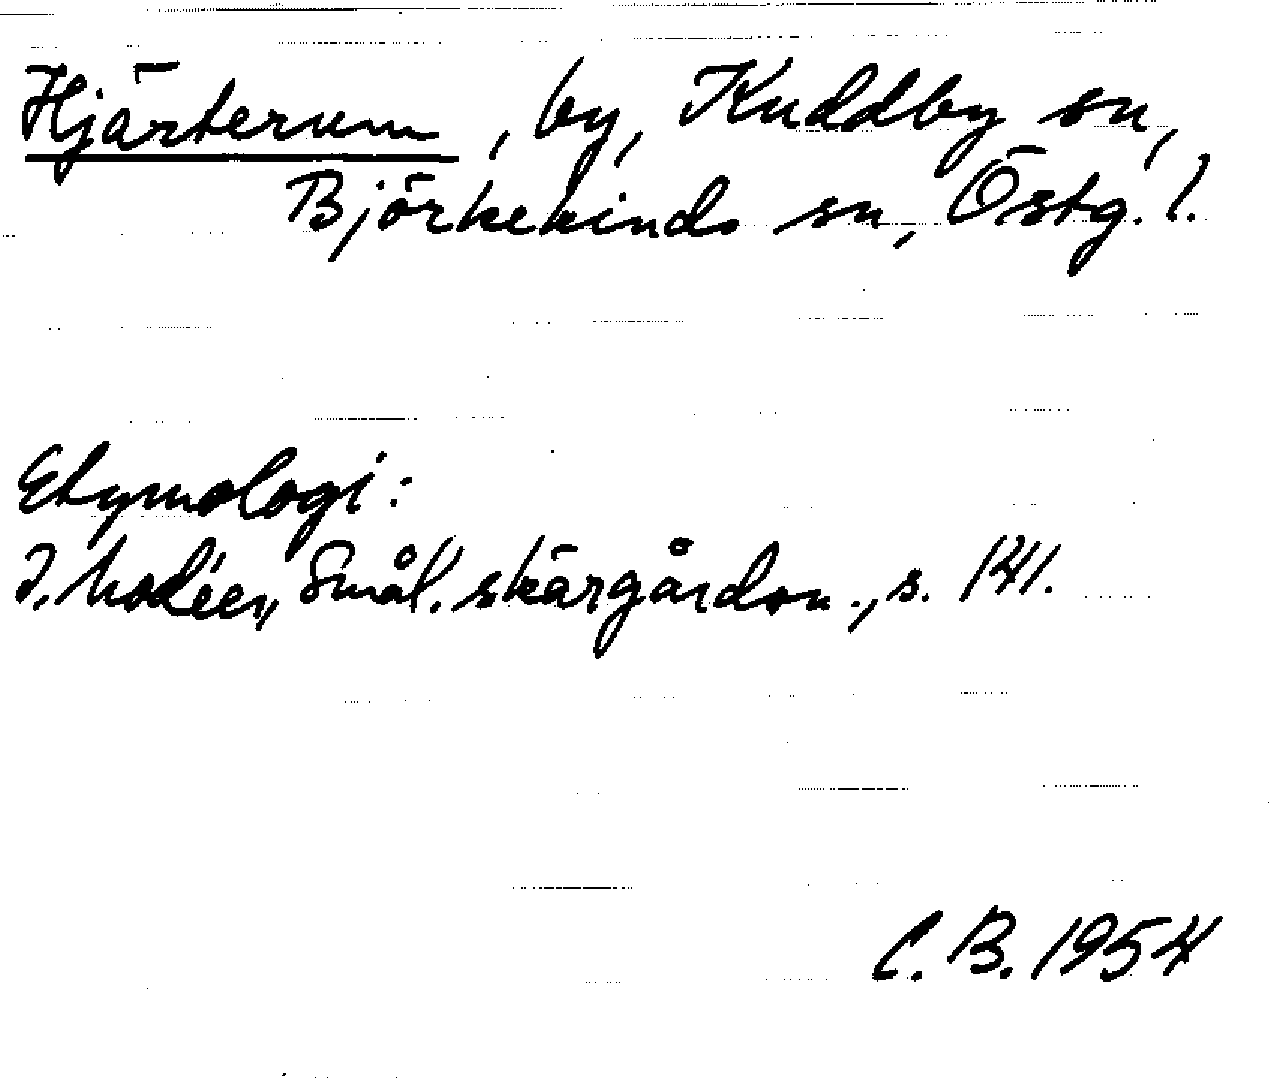 Hjärterum, by, Kuddby sn,
Björkekinds sn, Östg. l.
Etymologi:
I. Modéer, Smål. skärgårdsn., s. 141.
C. B. 1954